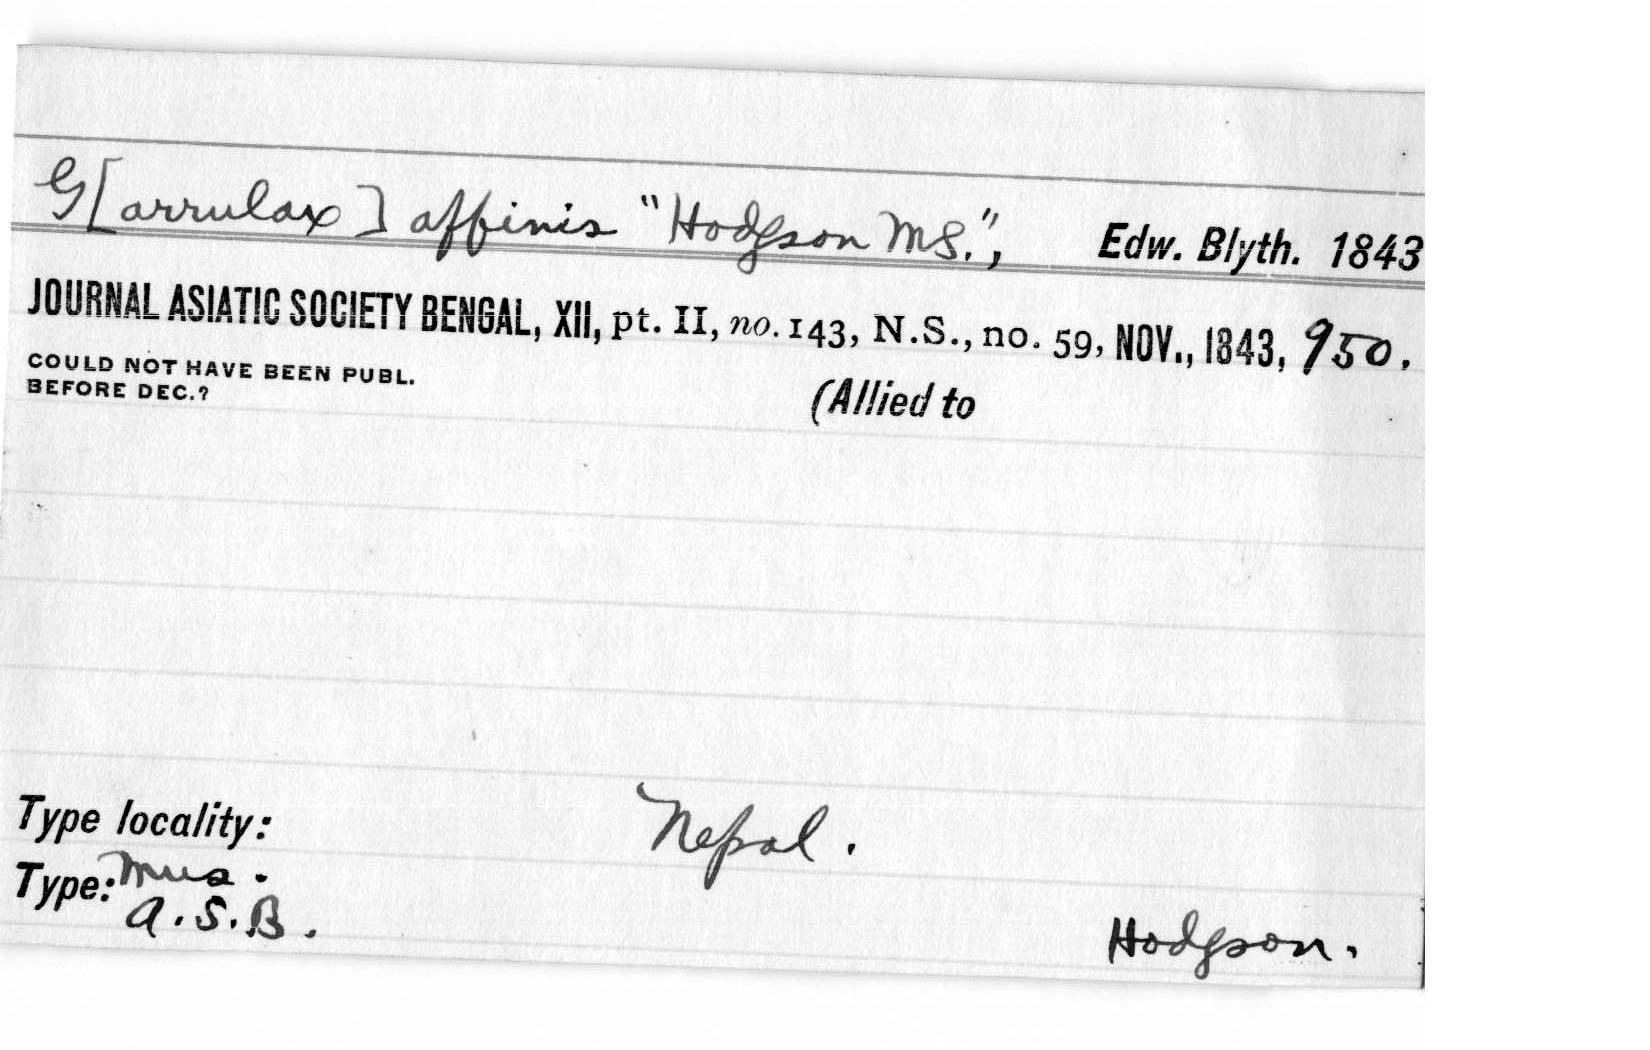 G[arrulax] affinis "Hodgson MS.", Edw. Blyth. 1843
JOURNAL ASIATIC SOCIETY BENGAL, XII, pt. II, no. 143, N.S., no. 59, NOV., 1843, 950.
COULD NOT HAVE BEEN PUBL.
BEFORE DEC.?
(Allied to
Type locality: Nepal.
Type: Mus.
A.S.B.
Hodgson.